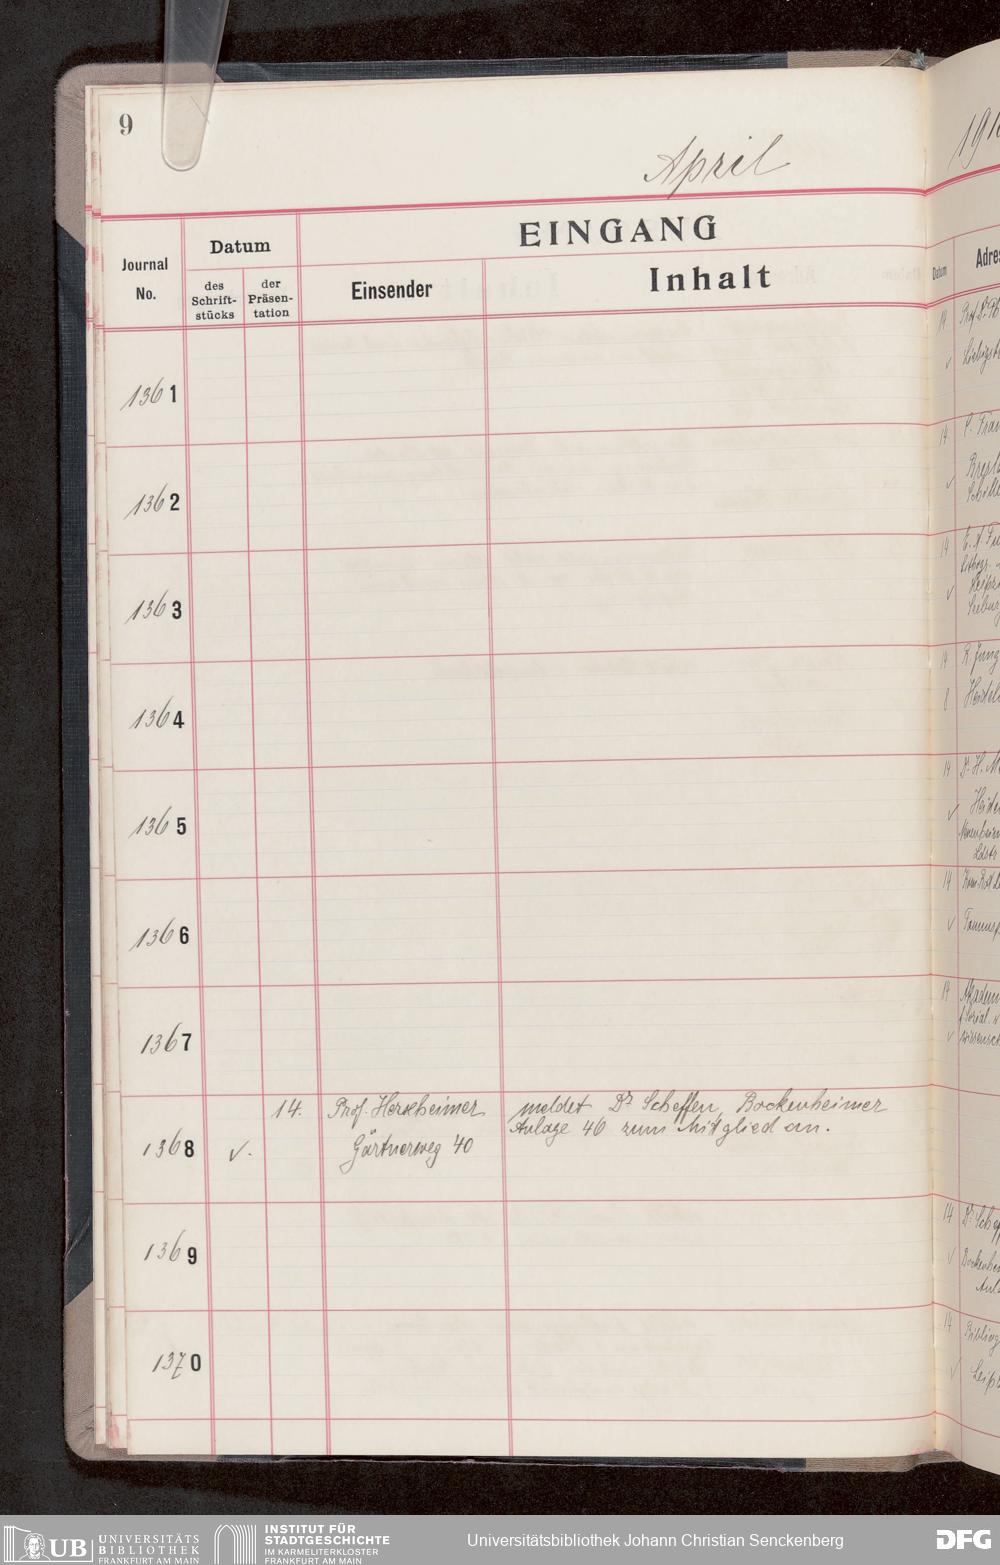 9
April
191
EINGANG
Journal
No.
Datum
des
Schrift-
stücks
der
Präsen-
tation
Einsender
Inhalt
Datum
Adres
1361
1362
1363
1364
1365
1366
1367
1368
✓.
14.
Prof. Herxheimer
Gärtnerweg 40
meldet Dr Scheffen, Bockenheimer
Anlage 46 zum Mitglied an.
1369
1370
14
14
14
14
8
14
14
14
14
Dr. Scheff
Bockenhei
Anl
14
Leipz
UB
UNIVERSITÄTS
BIBLIOTHEK
FRANKFURT AM MAIN
INSTITUT FÜR
STADTGESCHICHTE
IM KARMELITERKLOSTER
FRANKFURT AM MAIN
Universitätsbibliothek Johann Christian Senckenberg
DFG